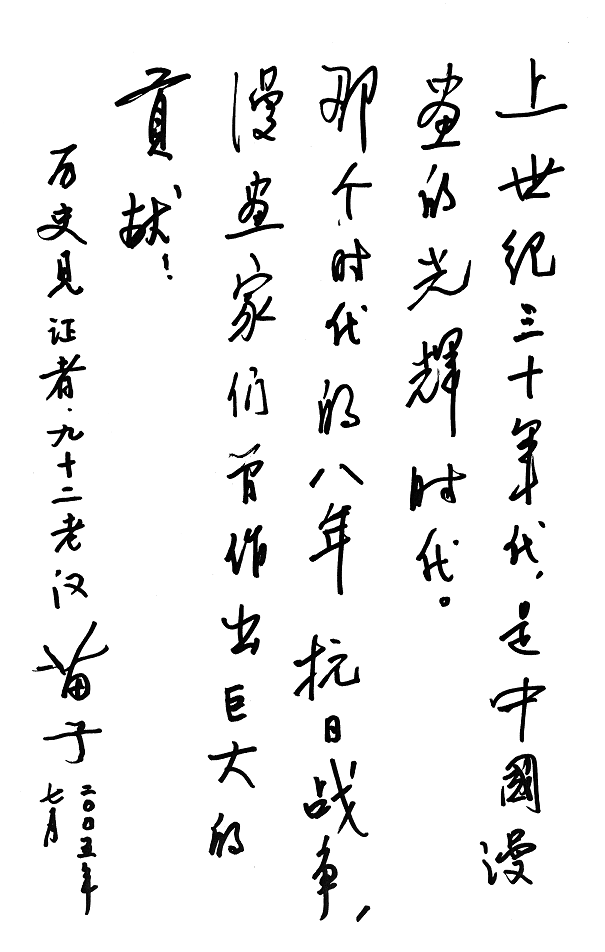 上世纪三十年代，是中國漫
画的光辉时代。
那个时代的八年抗日战争，
漫画家们曾作出巨大的
贡献！
历史见证者·九十二老汉 苗子
二〇〇五年
七月